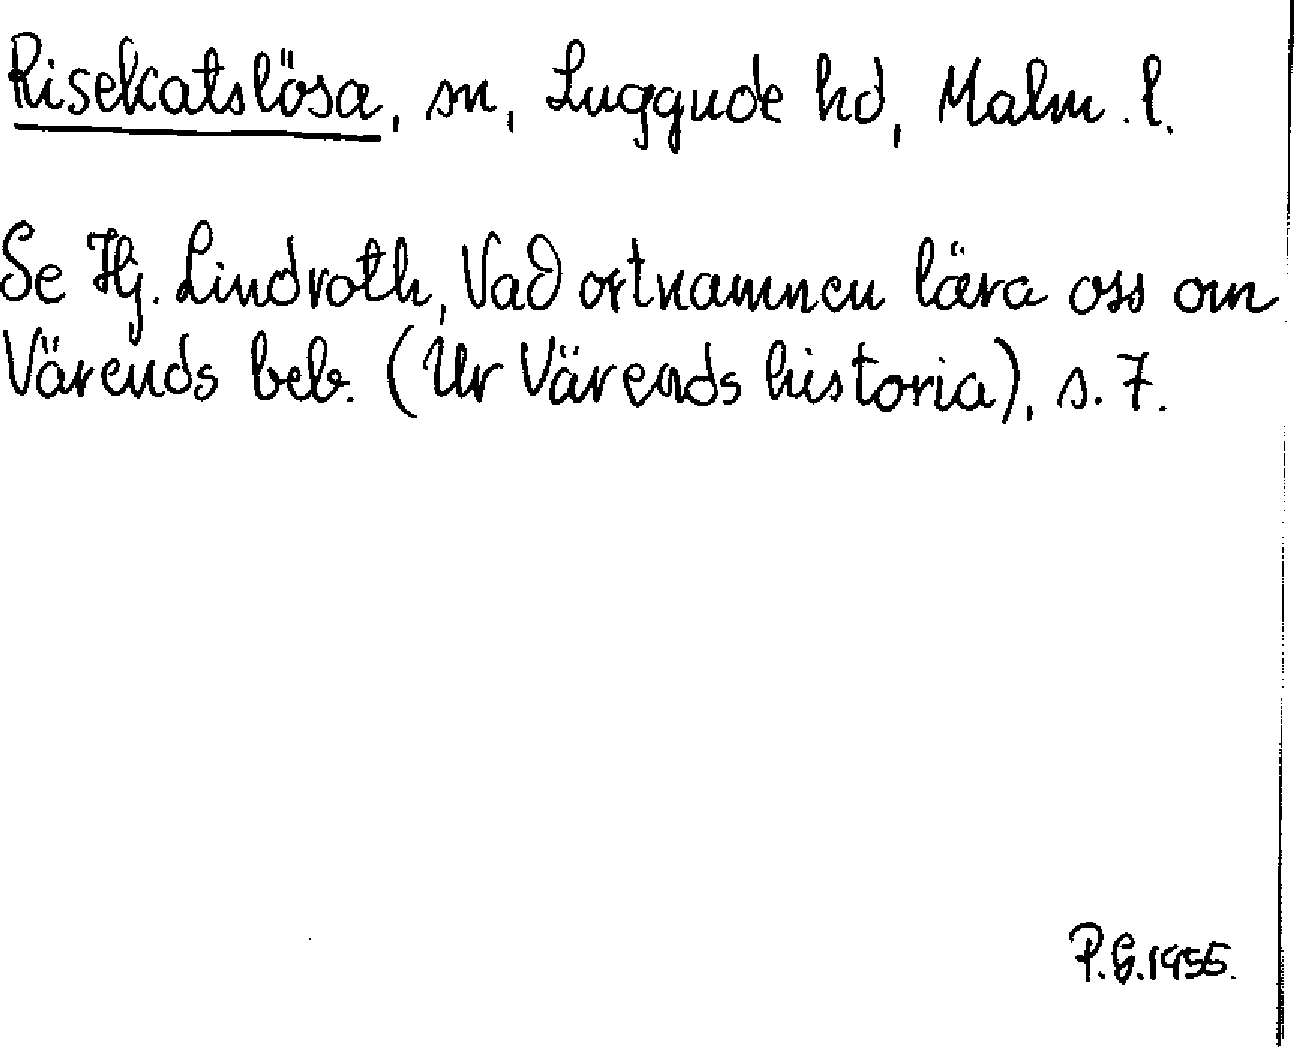 Risekatslösa, sn, Luggude hd, Malm. l.
Se Hj. Lindroth, Vad ortnamnen lära oss om
Värends beb. (Ur Värends historia), s. 7.
P.G.1955.